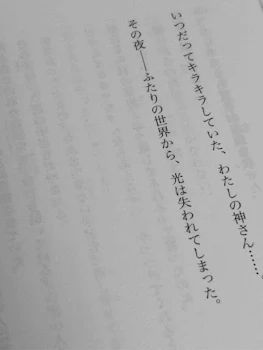 いつだってキラキラしていた、わたしの神さん……。
その夜――ふたりの世界から、光は失われてしまった。